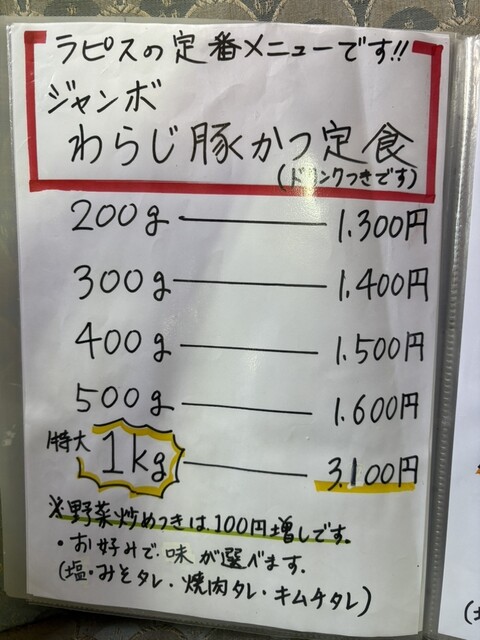 ラピスの定番メニューです!!
ジャンボ
わらじ豚かつ定食
(ドリンクつきです)
200g 1.300円
300g 1.400円
400g 1.500円
500g 1.600円
特大 1kg 3.100円
※野菜炒めつきは100円増しです.
・お好みで味が選べます.
(塩・みそタレ・焼肉タレ・キムチタレ)